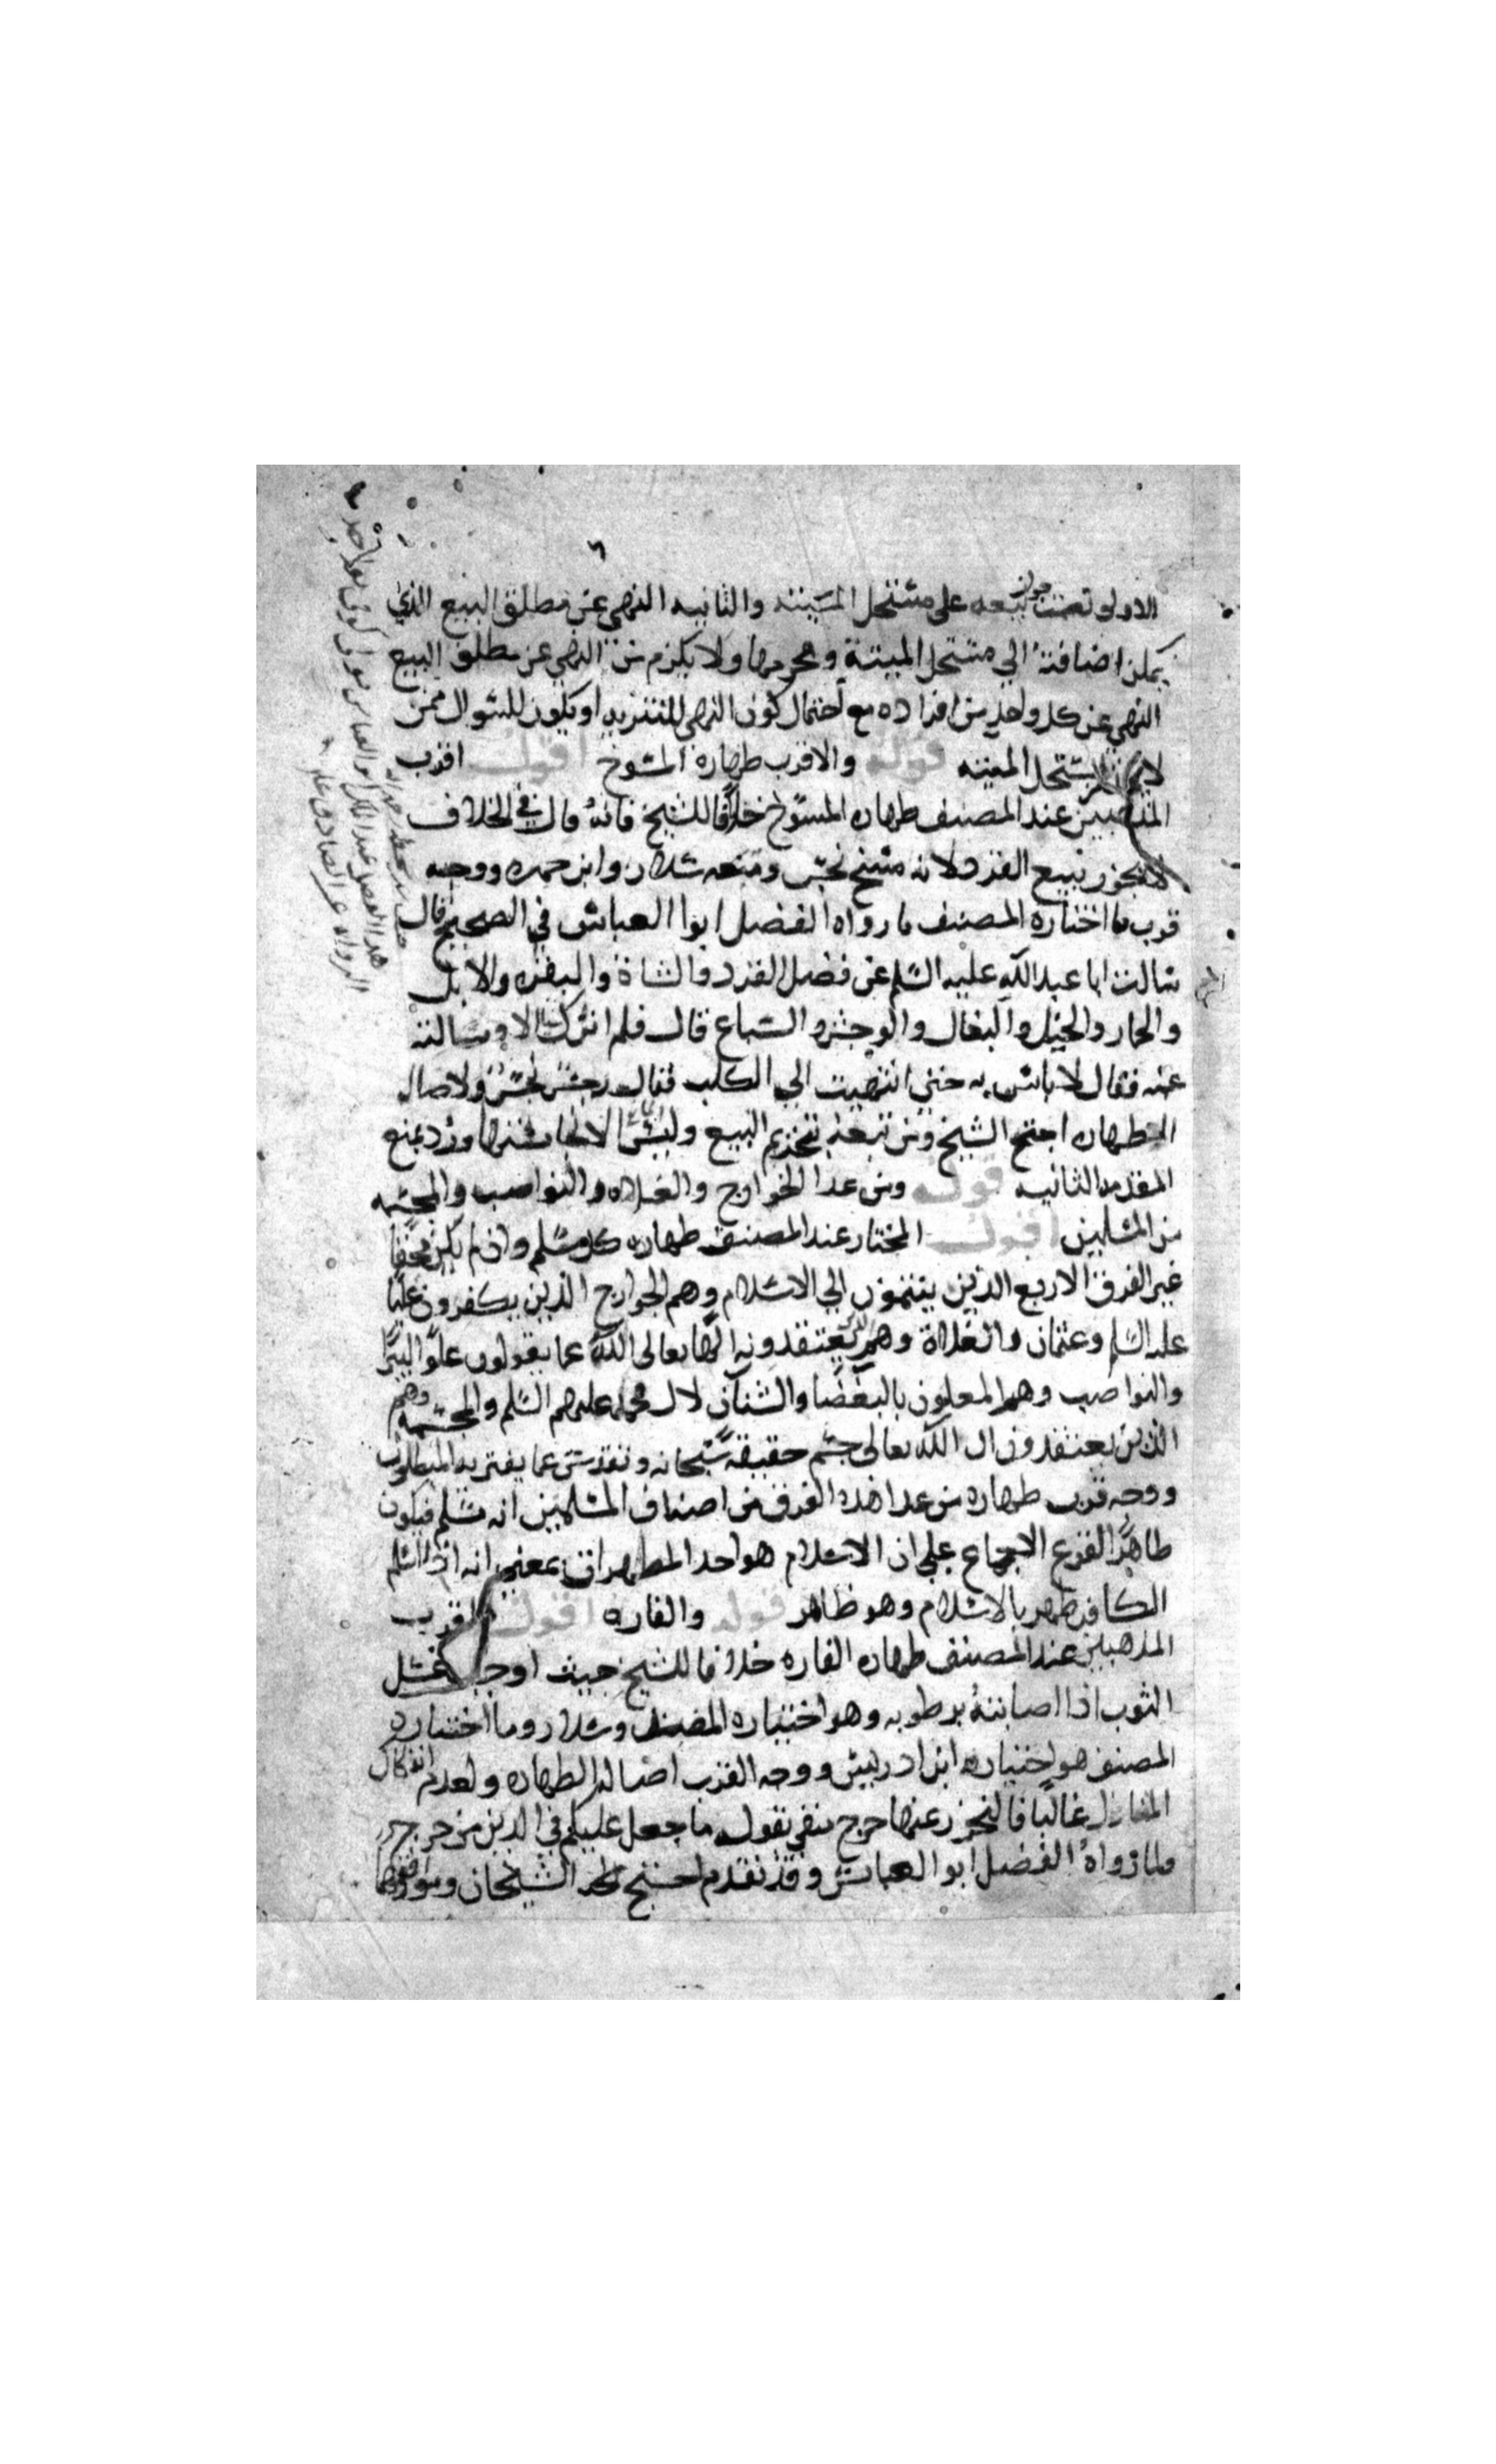 ٦
الاولى تضمنت جواز بيعه على مستحل الميتة والثانيه النهي عن مطلق البيع الذي
يمكن اضافته الي مستحل الميتة ومحرمها ولا يلزم من النهي عن مطلق البيع
النهي عن كل واحد من افراده مع احتمال كون النهي للتنزيه او يكون للسوال ممن
لا يستحل الميته قوله والاقرب طهارة المسوخ اقول اقرب
المذهبين عند المصنف طهاره المسوخ خلافا للشيخ فانه قال في الخلاف
لا يجوز بيع القرد لانه مسخ نجس وتبعه سلار وابن حمزه ووجه
قرب ما اختاره المصنف ما رواه الفضل ابوا العباس في الصحيح قال
سالت ابا عبد الله عليه السلم عن فضل القرد والشاة والبقره والابل
والحمار والخيل والبغال والوحش والسباع قال فلم اترك شيا الا وسالته
عنه فقال لا باس به حتي انتهيت الي الكلب فقال رجس نجس ولاصاله
الطهاره احتج الشيخ ومن تبعه بتحريم البيع وليس الا لنجاستها ورد بمنع
المقدمه الثانيه قوله ومن عدا الخوارج والغلاه والنواصب والمجسمه
من المسلمين اقول المختار عند المصنف طهاره كل مسلم وان لم يكن محقا
غير الفرق الاربع الذين ينتمون الي الاسلام وهم الخوارج الذين يكفرون عليا
عليه السلم وعثمان والغلاة وهم الذين يعتقدونه الها تعالى الله عما يقولون علوا كبيرا
والنواصب وهم المعلنون بالبغضا والشنآن لال محمد عليهم السلم والمجسمة وهم
الذين يعتقدون ان الله تعالى جسم حقيقة سبحانه وتقدس عما يفتريه المبطلون
ووجه قرب طهاره من عدا هذه الفرق من اصناف المسلمين انه مسلم فيكون
طاهرا لوقوع الاجماع علي ان الاسلام هو احد المطهرات بمعني انه اذا اسلم
الكافر طهر بالاسلام وهو ظاهر قوله والفاره اقول اقرب
المذهبين عند المصنف طهاره الفاره خلافا للشيخ حيث اوجب غسل
الثوب اذا اصابته برطوبه وهو اختياره المفيد وسلار وما اختاره
المصنف هو اختياره ابن ادريس ووجه القرب اصالة الطهاره ولعدم انفكاك
المنازل غالبا فالتحرز عنها حرج منفي بقوله ما جعل عليكم في الدين من حرج
ولما رواه الفضل ابو العباس وقد تقدم احتج الشيخان وموافقوهما